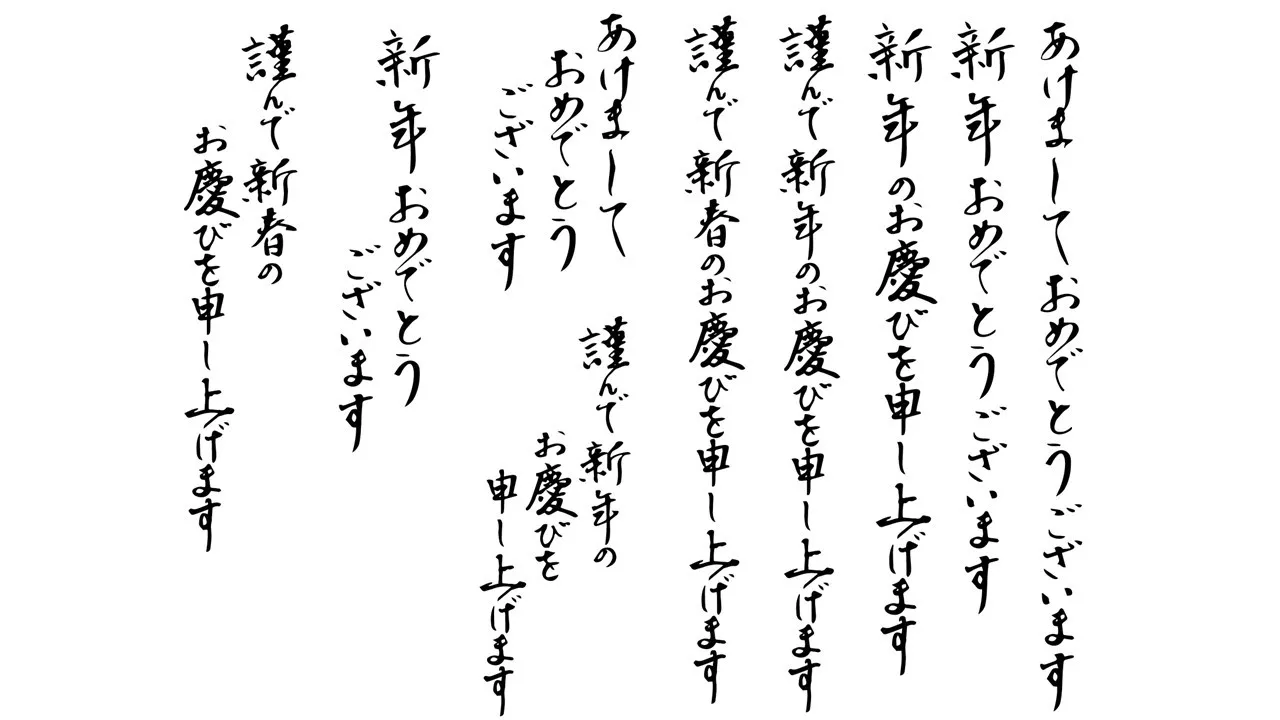 あけましておめでとうございます
新年おめでとうございます
新年のお慶びを申し上げます
謹んで新年のお慶びを申し上げます
謹んで新春のお慶びを申し上げます
あけまして
おめでとう
ございます
謹んで新年の
お慶びを
申し上げます
新年おめでとう
ございます
謹んで新春の
お慶びを申し上げます